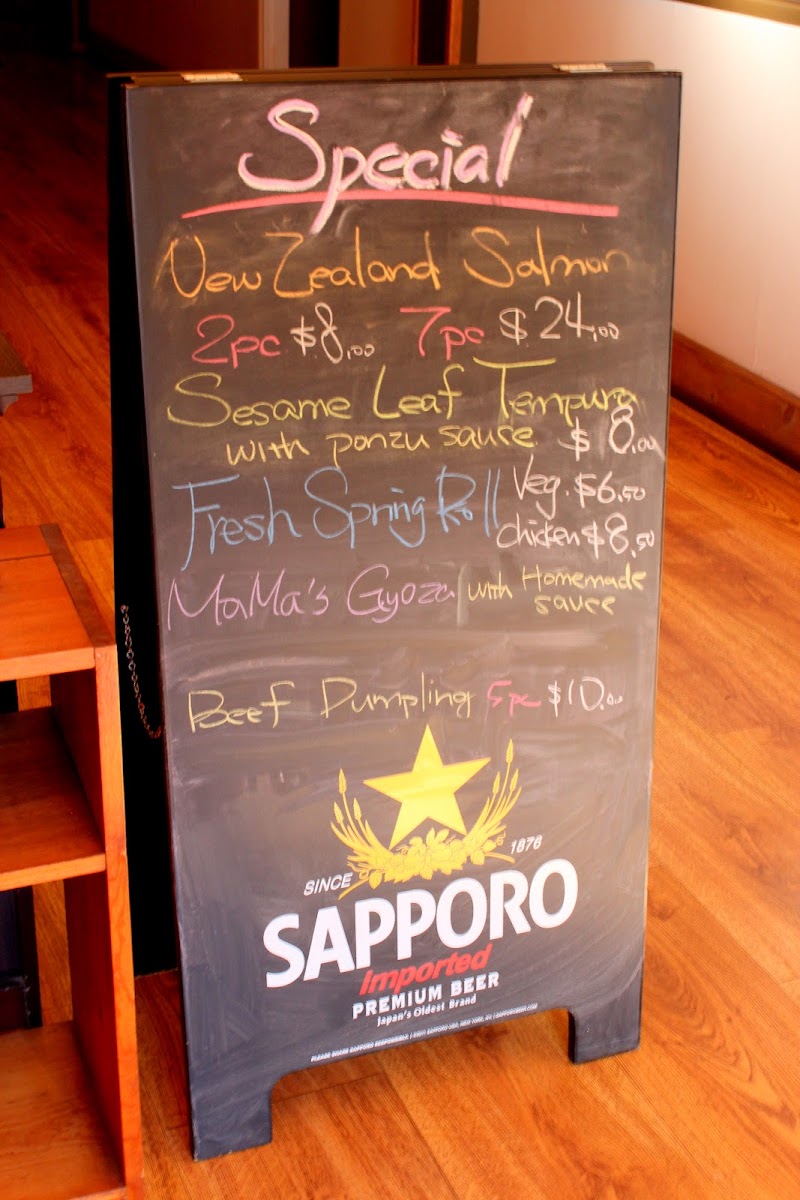 Special
New Zealand Salmon
2pc $8.00 7pc $24.00
Sesame Leaf Tempura
with ponzu sauce $8.00
Fresh Spring Roll Veg. $6.50
chicken $8.50
MaMa's Gyoza with Homemade
sauce
Beef Dumpling 5pc $10.00
SINCE 1876
SAPPORO
Imported
PREMIUM BEER
Japan's Oldest Brand